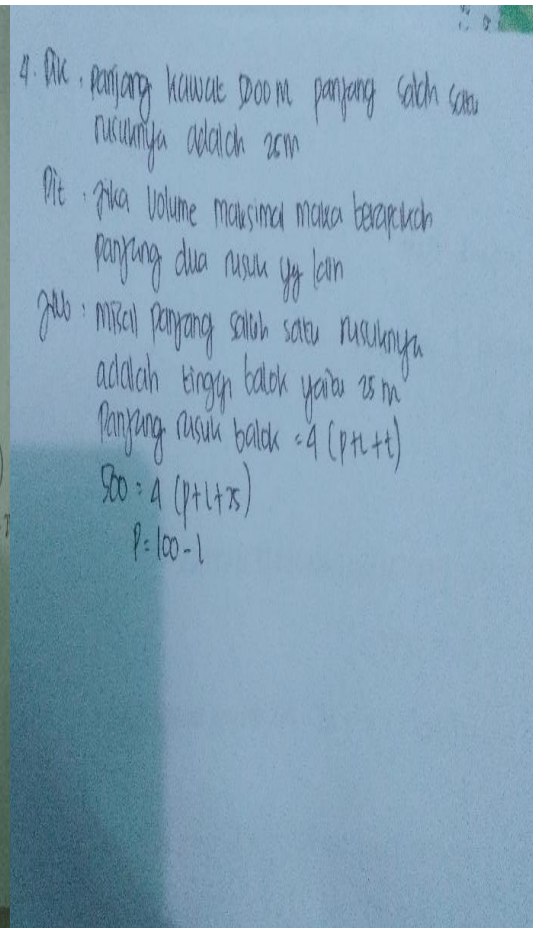 4. Dik : panjang kawat 500 m panjang salah satu
rusuknya adalah 25m
Dit : jika volume maksimal maka berapakah
panjang dua rusuk yg lain
jwb : misal panjang salah satu rusuknya
adalah tinggi balok yaitu 25 m
Panjang rusuk balok = 4 (p+l+t)
500 = 4 (p+l+25)
p = 100 - l